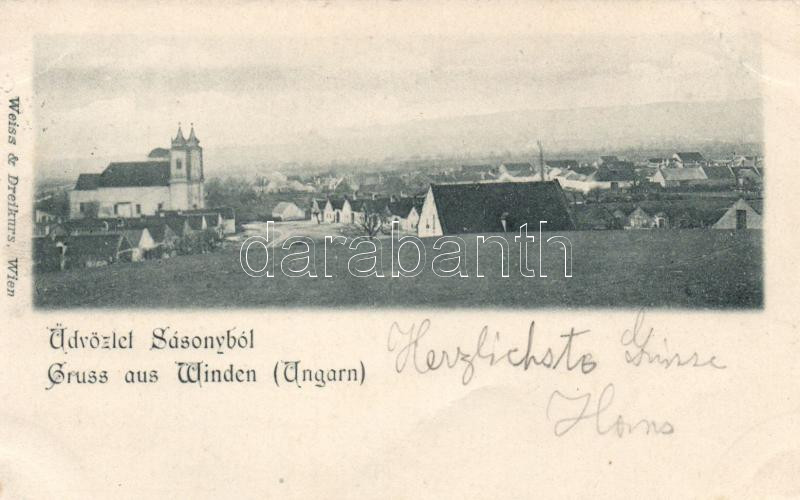 Weiss & Dreikurs, Wien
darabanth
Üdvözlet Sásonyból
Gruss aus Winden (Ungarn)
Herzlichste Grüsse
Hans